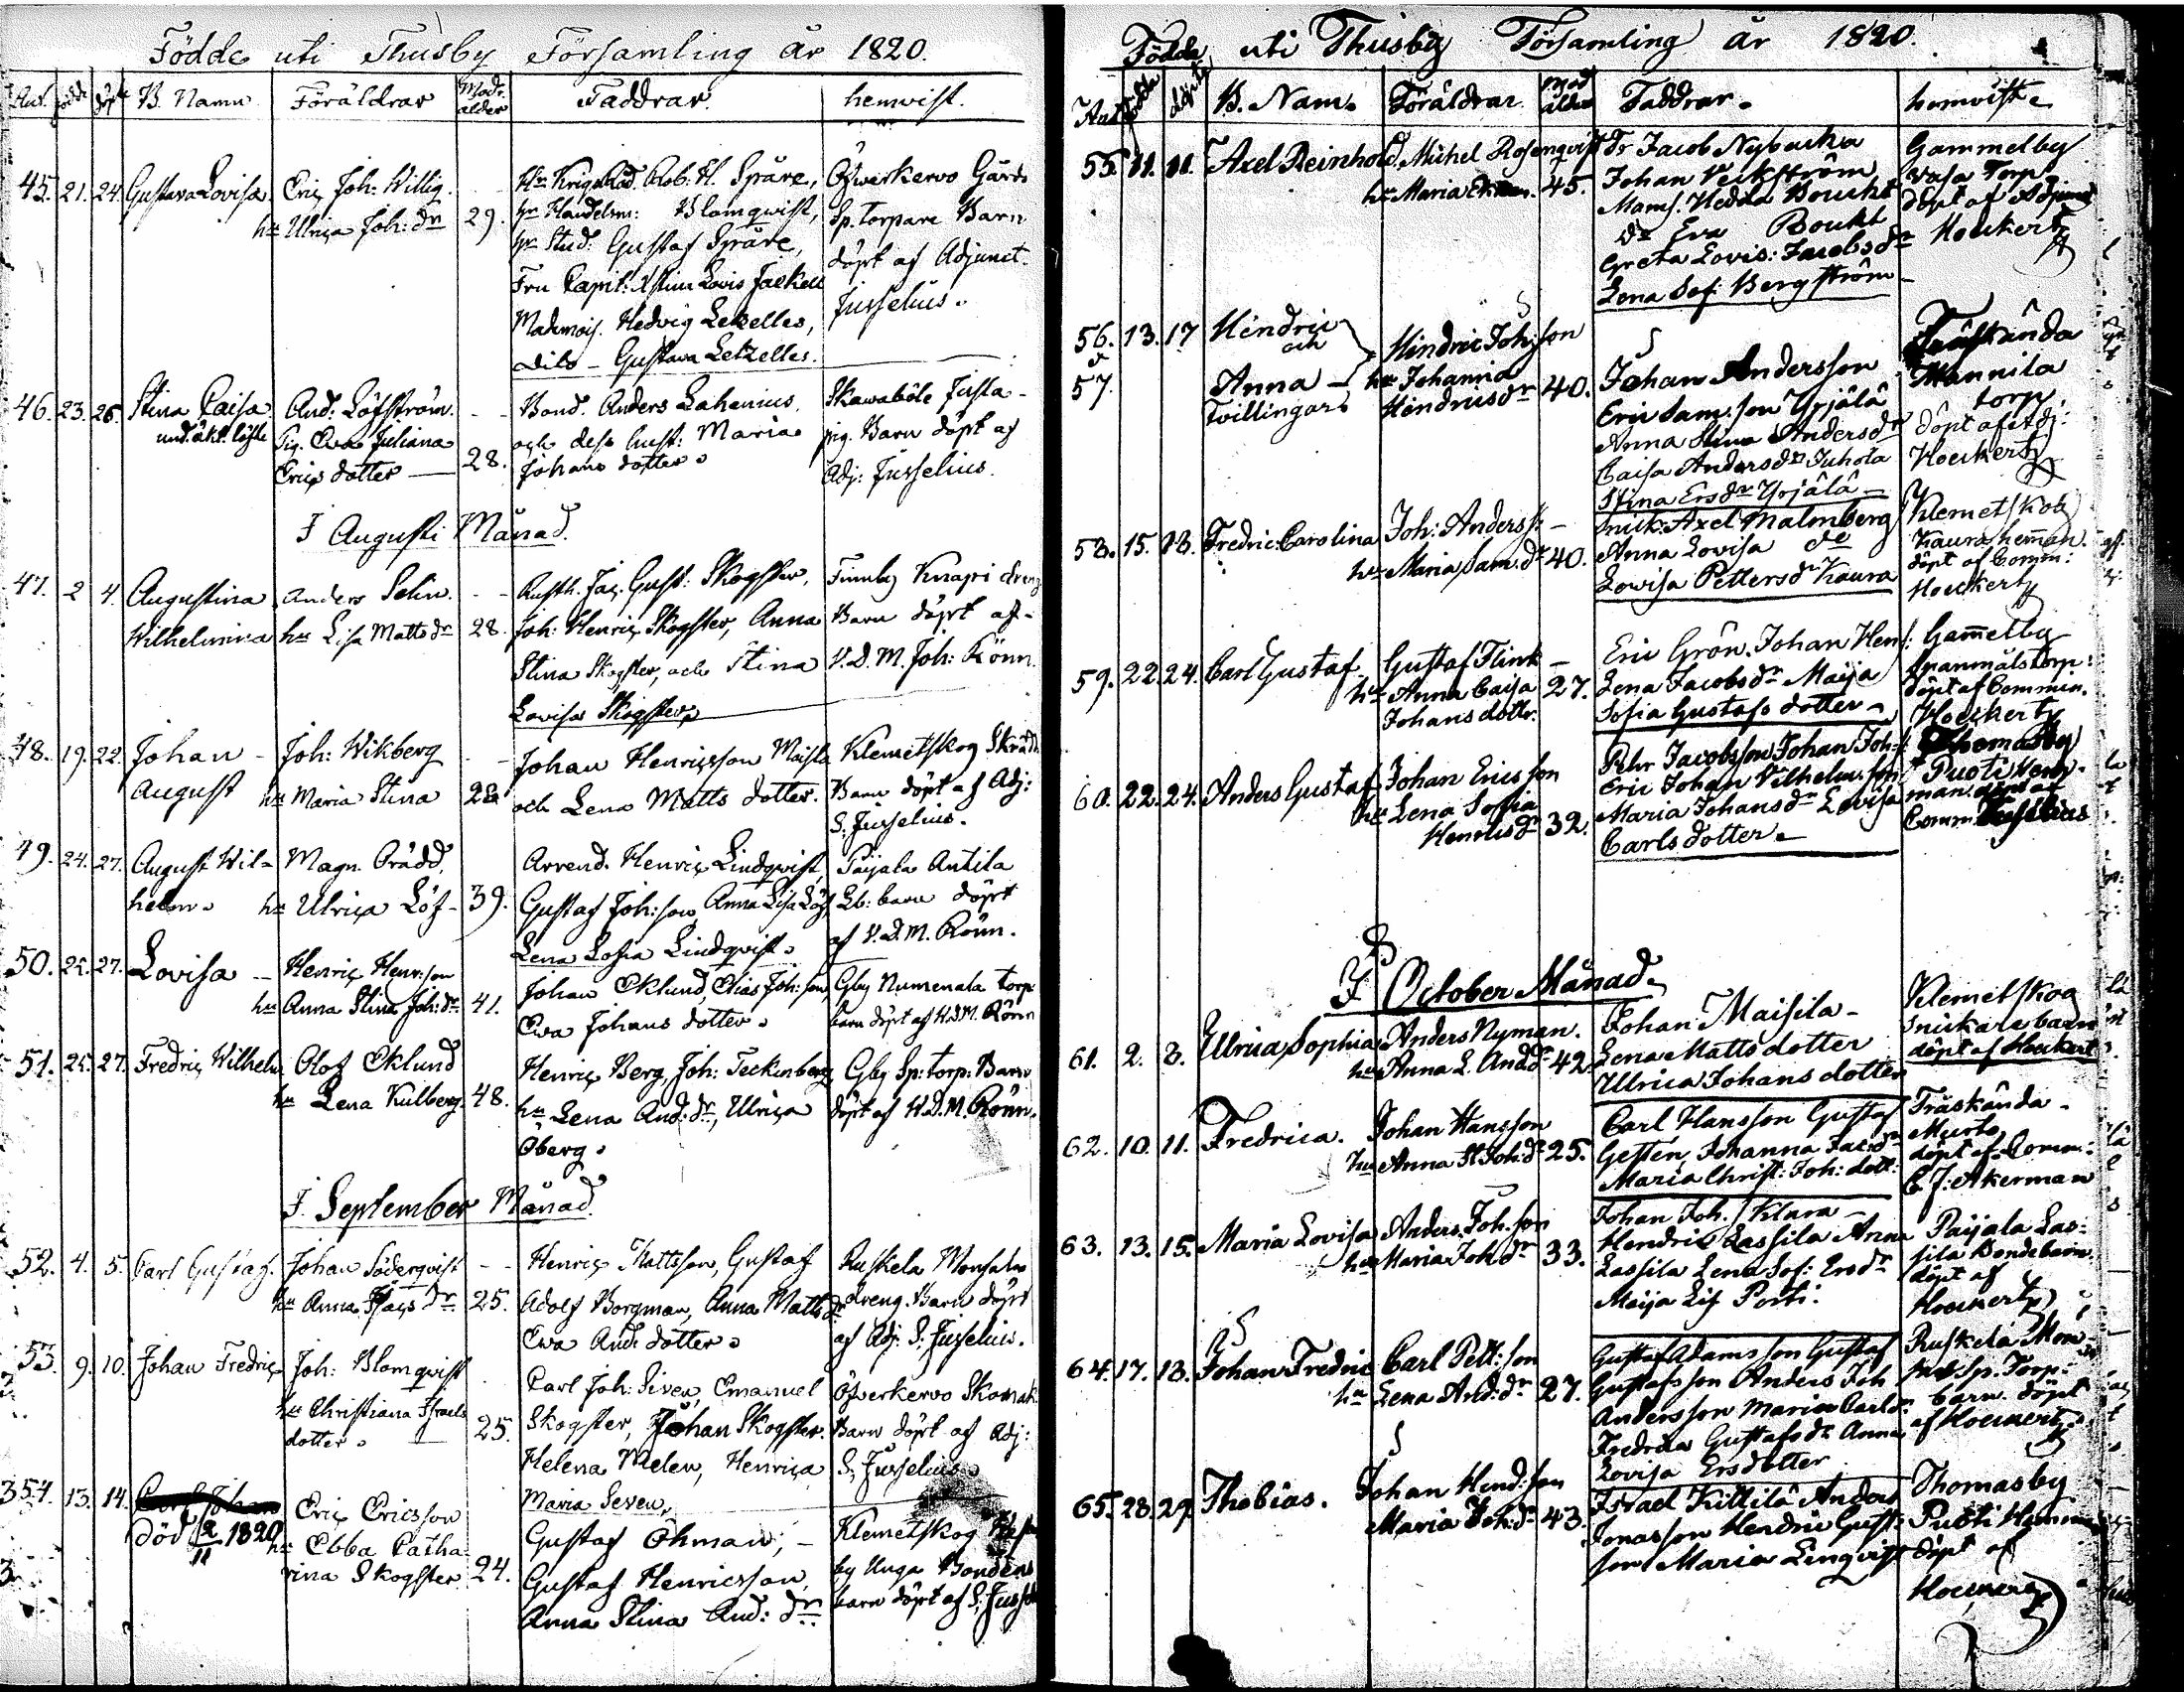 Födde uti Thusby Församling år 1820.
Ant. födde döpte B. Namn Föräldrar Modr. ålder Faddrar. hemvist.
45. 21. 24. Gustava Lovisa. Eric Joh: Willig. hu Ulrica Joh: dr 29.
Hr Krigsråd. Rob: H. Spåre,
hr Handelsm: Blomqvist,
hr Stud: Gustaf Spåre,
Fru Capit: Lovis Jackell
Mademois. Hedvig Letzelles,
dito - Gustava Letzelles.
Öfverkervo Gårds
Sp. torpare Barn
döpt af Adjunct.
Jusselius.
46. 23. 26. Stina Caisa And: Löfström.
und. äkt. löfte Pig. Eva Juliana
Erics dotter 28.
Bond. Anders Lahenius,
och dess hust: Maria
Johans dotter.
Skavaböle Jusla-
pig. Barn döpt af
Adj: Jusselius.
I Augusti Månad.
47. 2 4. Augustina Anders Selin.
Wilhelmina hu Lisa Matts dr 28.
Rusth. Jac. Gust: Skogster,
Joh: Henric Skogster, Anna
Stina Skogster, och Stina
Lovisa Skogster,
Finnby Knapri dreng
Barn döpt af-
V. D. M. Joh: Rönn.
48. 19. 22. Johan - Joh: Wikberg
August hu Maria Stina 28
Johan Henricsson Maisla
och Lena Matts dotter.
Klemetskog Skrädd.
Barn döpt af Adj:
S. Jusselius.
49. 24. 27. August Wil- Magn. Brädd.
helm. hu Ulrica Löf- 39.
Arrend. Henric Lindqvist,
Gustaf Joh: son, Anna Lisa Löf
Lena Sofia Lindqvist.
Paijala Antila
Lb: barn döpt
af V. D. M. Rönn.
50. 25. 27. Lovisa - Henric Henr: son
hu Anna Stina Joh: dr 41.
Johan Eklund, Elias Joh: son,
Eva Johans dotter.
Gby Numenala torp
barn döpt af V.D.M. Rönn
51. 25. 27. Fredric Wilhelm Olof Eklund
hu Lena Kulberg. 48.
Henric Berg, Joh: Teckenberg
hu Lena And: dr, Ulrica
Öberg.
Gby Sp: torp: Barn
döpt af V.D.M. Rönn.
I September Månad.
52. 4. 5. Carl Gustaf. Johan Söderqvist
hu Anna Isacs dr 25.
Henric Mattsson, Gustaf
Adolf Borgman, Anna Matts dr
Eva And: dotter.
Ruskela Monsalas
dreng. Barn döpt
af Adj. S. Jusselius.
53. 9. 10. Johan Fredric Joh: Blomqvist
hu Christiana Israels
dotter. 25.
Carl Joh: Siven, Emanuel
Skogster, Johan Skogster.
Helena Melen, Henrica
Maria Seven,
Öfverkervo Skomak.
Barn döpt af Adj:
S. Jusselius
54. 13. 14. Carl Johan Eric Ericsson
död 2/11 1820 hu Ebba Catha
rina Skogster 24.
Gustaf Öhman, -
Gustaf Henricsson,
Anna Stina And: dr
Klemetskog
by Unga Bondens
barn döpt af S. Juss
Födde uti Thusby Församling år 1820.
Ant födde döpte B. Nam. Föräldrar Mod ålder Faddrar. hemvist.
55. 11. 11. Axel Reinhold. Michel Rosenqvist
hu Maria 45.
Fr Jacob Nybacka
Johan Veckström
Mams. Hedda Boucht
do Eva Boukt
Greta Lovis: Jacobs dr
Lena Sof: Bergström
Gammelby
Vasa Torp
döpt af Adjunct
Hoeckert
56. 13. 17 Hendric Hindric Joh: son
och
57. Anna - hu Johanna
Tvillingar Hendricsdr 40.
Johan Andersson
Eric Sam: son Yrjälä
Anna Stina Andersdr
Caisa Andersdr Juhola
Stina Ersdr Yrjälä
Träskända
Mannila
torp,
döpt af Adj:
Hoeckert
58. 15. 18. Fredric: Carolina Joh: Anders s: -
hu Maria Sam. dr 40.
Snick: Axel Malmberg
Anna Lovisa do
Lovisa Petters dr Kaura
Klemetskog
Kaura heman.
döpt af Comm:
Hoeckert
59. 22. 24. Carl Gustaf Gustaf Flink -
hu Anna Caisa 27.
Johans dottr.
Eric Grön. Johan Hen s:
Lena Jacobs dr Maija
Sofia Gustafs dotter
Gamelby
Spanmålstorp:
döpt af Commin.
Hoeckert
60. 22. 24. Anders Gustaf Johan Ericsson
hu Lena Sofia
Henrics dr 32.
Pehr Jacobsson Johan Joh: s
Eric Johan Vilhelm. son
Maria Johans dr Lovisa
Carls dotter.
Thomasby
Puoti Hem-
man. döpt af
Comm.
I October Månad.
61. 2. 3. Ulrica Sophia Anders Nyman.
hu Anna L. And dr 42.
Johan Maisila -
Lena Matts dotter
Ulrica Johans dotter
Klemetskog
Snickare barn
döpt af Hoeckert
62. 10. 11. Fredrica. Johan Hansson
hu Anna St Joh: dr 25.
Carl Hansson Gustaf
Getten, Johanna Jac: dr
Maria Christ: Joh: dott:
Träskända -
Murto
döpt af Comm:
C. J: Åkerman
63. 13. 15. Maria Lovisa Anders Joh. son
hu Maria Joh dr 33.
Johan Joh. s Klara -
Hendric Lassila Anna
Lassila Lena Sof: Ersdr
Maija Lis Porti.
Paijala Las:
sila Bondebarn
döpt af
Hoeckert
64. 17. 18. Johan Fredric Carl Pett: son
hu Lena And: dr 27.
Gustaf Adamsson Gustaf
Gustafsson Anders Joh
Andersson Maria Carls dr
Fredrica Gustafs dr Anna
Lovisa Ersdotter
Ruskela Mon-
Sp. Torp:
barn. döpt
af Hoeckert.
65. 28. 29 Thobias. Johan Hend: son
Maria Joh: dr 43.
Israel Kittilä Anders
Jonasson Hendric Gust:
son Maria Lenqvist
Thomasby
Puoti Hemman
döpt af
Hoeckert